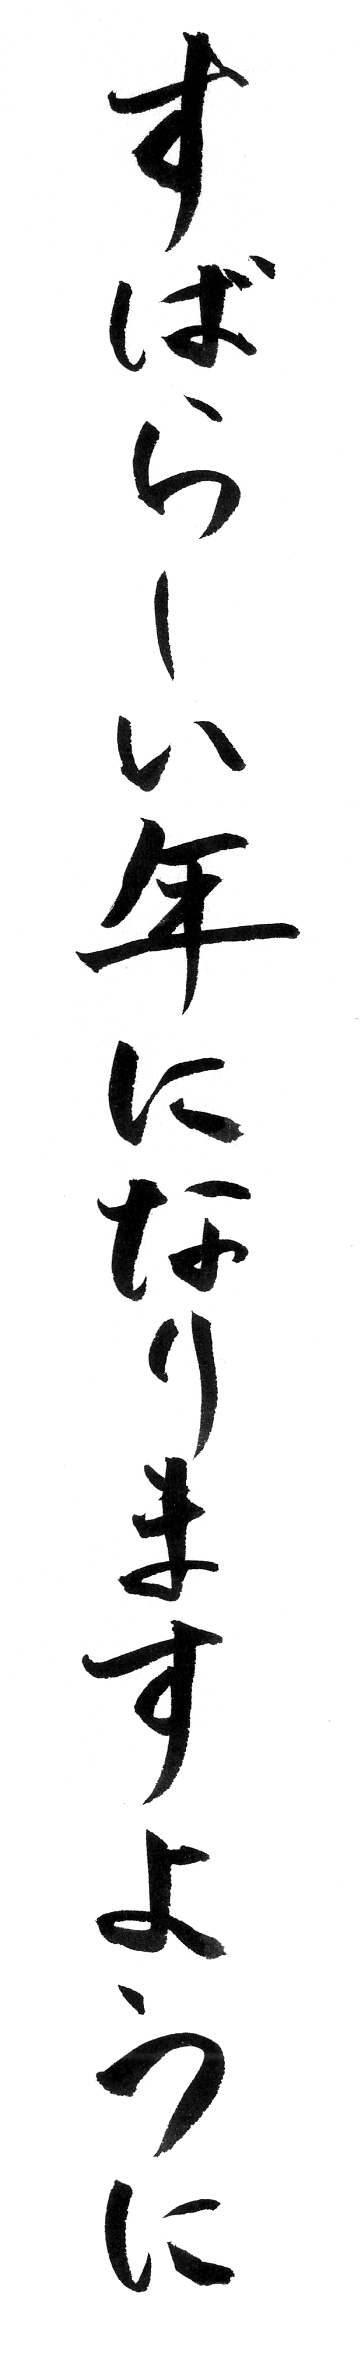 すばらしい年になりますように